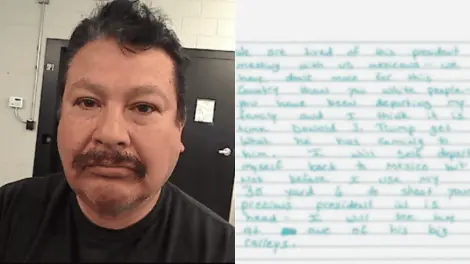 We are tired of this president
messing with us mexicans - we
have done more for this
Country than you white people -
you have been deporting my
family and I think it is
time Donald J. Trump get
What he has coming to
him. I will self deport
myself back to Mexico but
not before I use my
30 yard 6 to shoot your
precious president in is
head - I will see him
at one of his big
ralleys.